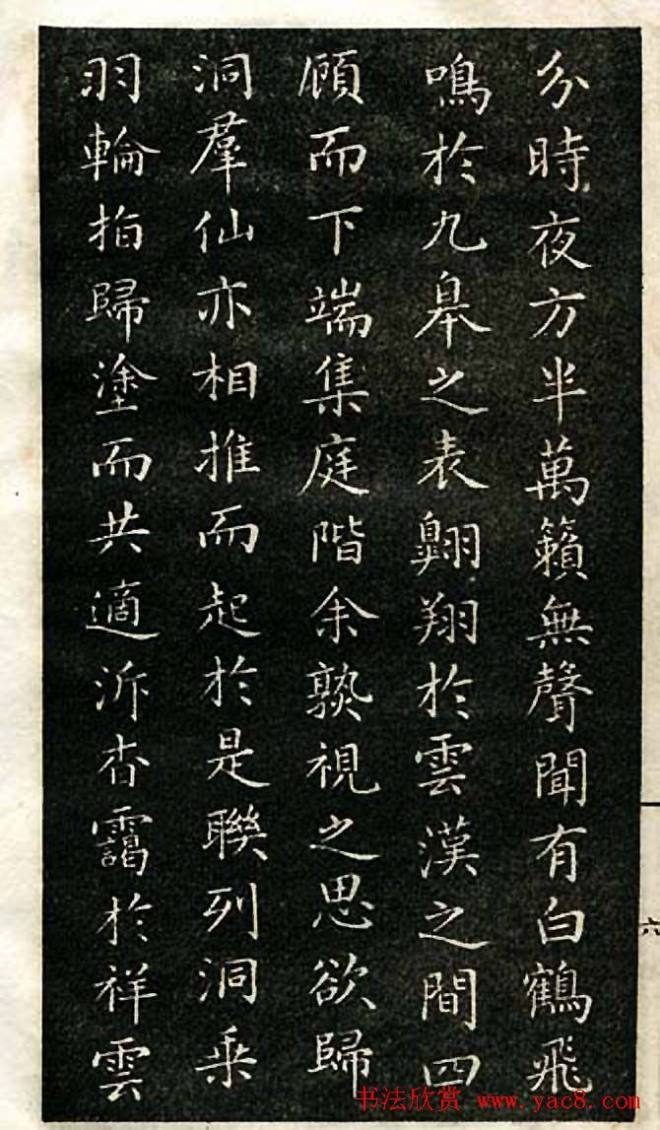 分時夜方半萬籟無聲聞有白鶴飛
鳴於九皋之表翺翔於雲漢之間四
頋而下端集庭階余熟視之思欲歸
洞羣仙亦相推而起於是聯列洞乗
羽輪指歸塗而共適泝杳靄於祥雲
六
书法欣赏 www.yac8.com